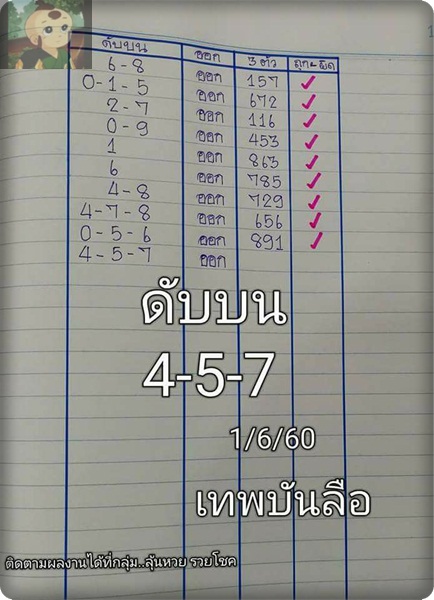 ดับบน ออก 3 ตัว ถูก-ผิด
6-8 ออก 157 ✓
0-1-5 ออก 672 ✓
2-7 ออก 116 ✓
0-9 ออก 453 ✓
1 ออก 863 ✓
6 ออก 785 ✓
4-8 ออก 729 ✓
4-7-8 ออก 656 ✓
0-5-6 ออก 891 ✓
4-5-7 ออก
ดับบน
4-5-7
1/6/60
เทพบันลือ
ติดตามผลงานได้ที่กลุ่ม..ลุ้นหวย รวยโชค